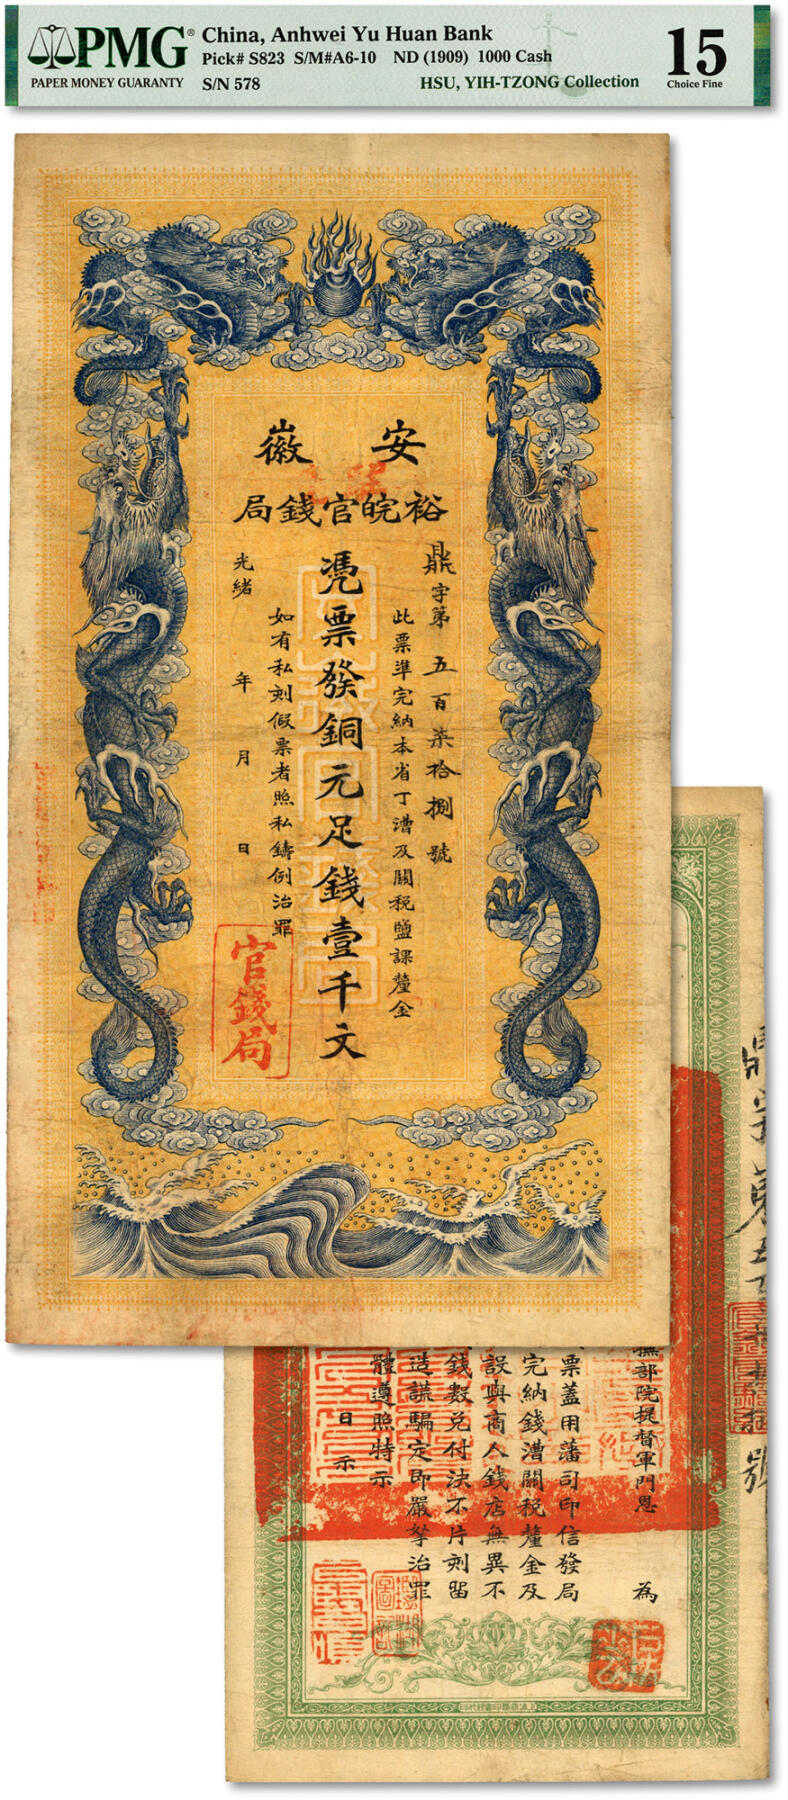 PMG
PAPER MONEY GUARANTY
China, Anhwei Yu Huan Bank
Pick# S823 S/M#A6-10 ND (1909) 1000 Cash
S/N 578
HSU, YIH-TZONG Collection
15
Choice Fine
安徽
裕皖官錢局
鼎字第五百柒拾捌號
此票準完納本省丁漕及關稅鹽課釐金
憑票發銅元足錢壹千文
如有私刻假票者照私鑄例治罪
光緒 年 月 日
官錢局
撫部院提督軍門恩 為
票蓋用藩司印信發局
完納錢漕關稅釐金及
設與商人錢店無異不
錢數兌付決不片刻留
造謊騙定即嚴拏治罪
體遵照特示
日示